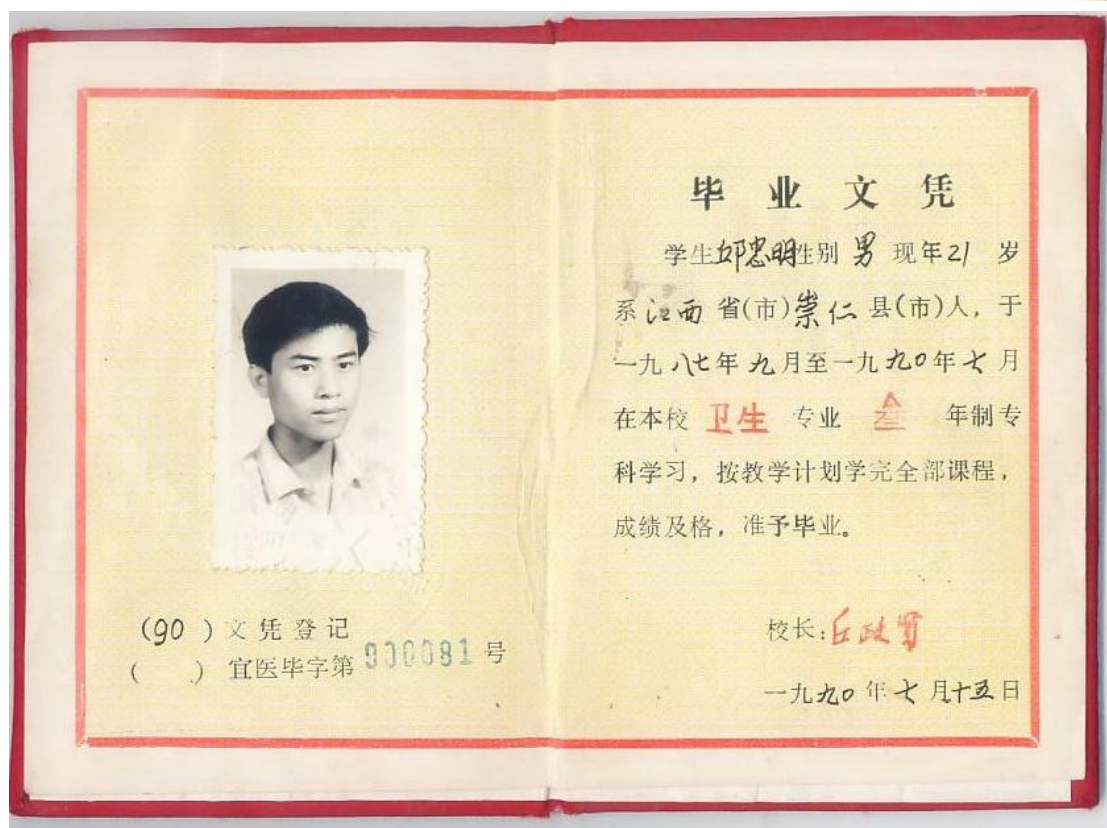 (90 ) 文凭登记
( ) 宜医毕字第 900081 号
毕业文凭
学生邱忠明性别 男 现年21 岁
系江西省(市)崇仁县(市)人，于
一九八七年九月至一九九〇年七月
在本校 卫生 专业 叁 年制专
科学习，按教学计划学完全部课程，
成绩及格，准予毕业。
校长：丘政贤
一九九〇年七月十五日